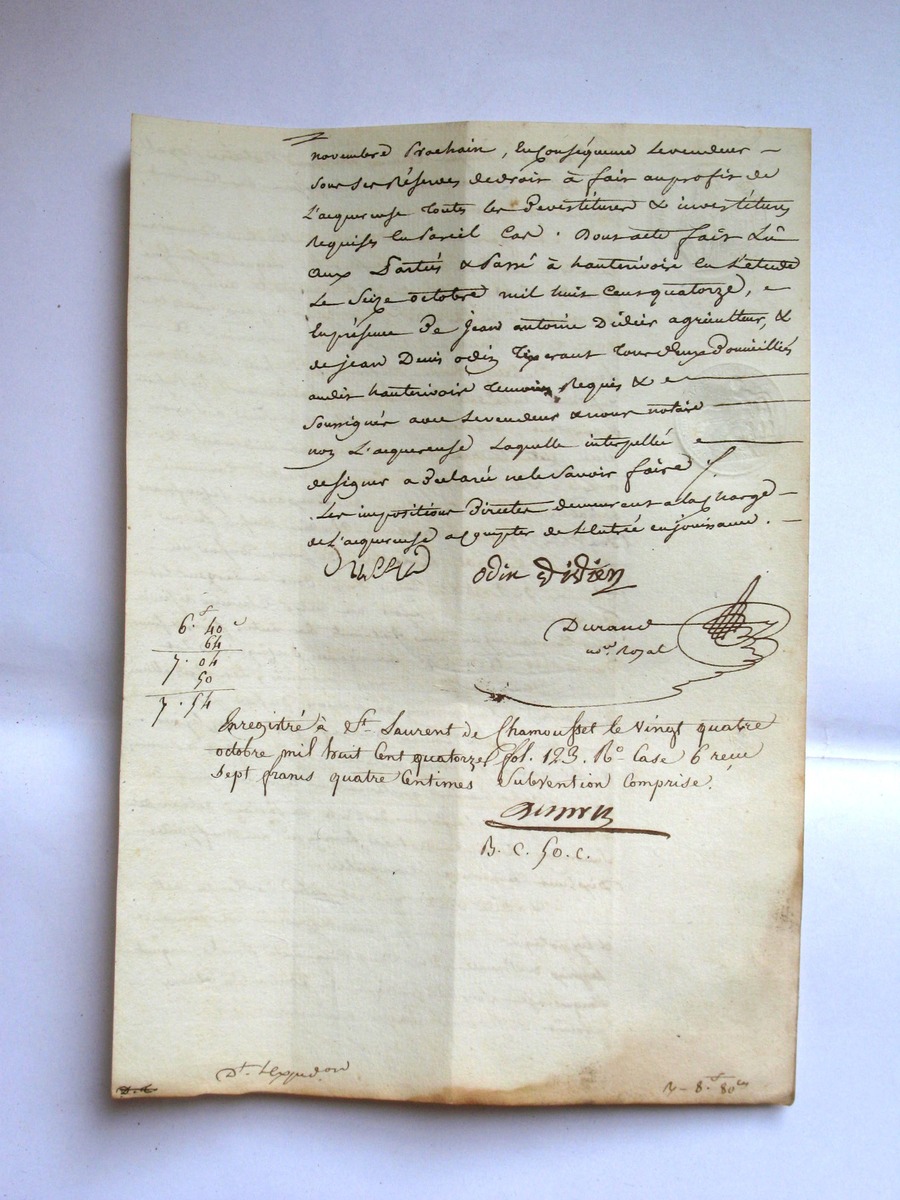 novembre Prochain, En Conséquence Le vendeur -
sous ses Réserves de droit à fait au profit de
L'acquereuse toutes les Devestitures & investitures
Requises En Pareil Cas. Dont acte fait Lû
aux Parties & Passé à hauterivoire En L'etude
Le Seize octobre mil huit Cent quatorze,
En présence De Jean antoine Didier agriculteur, &
de jean Denis odin Tisserant tous deux Domiciliés
audit hauterivoire temoins Requis &
Soussignés avec Le vendeur & nous notaire
non L'acquereuse Laquelle interpellé
de signer a Declaré ne le Savoir faire ./.
Les impositions Directes demeurent a la charge -
de L'acquereuse a Compter de L'Entrée en jouissance. -
odin Didier
Durand
nore. Royal
6.f 40c
64
7. 04
50
7. 54
Enregistré à St. Laurent de Chamousset le vingt quatre
octobre mil huit Cent quatorze fol. 123. Ro. Case 6 reçu
Sept francs quatre Centimes Subvention Comprise.
B. C. 50. C.
8.f 80